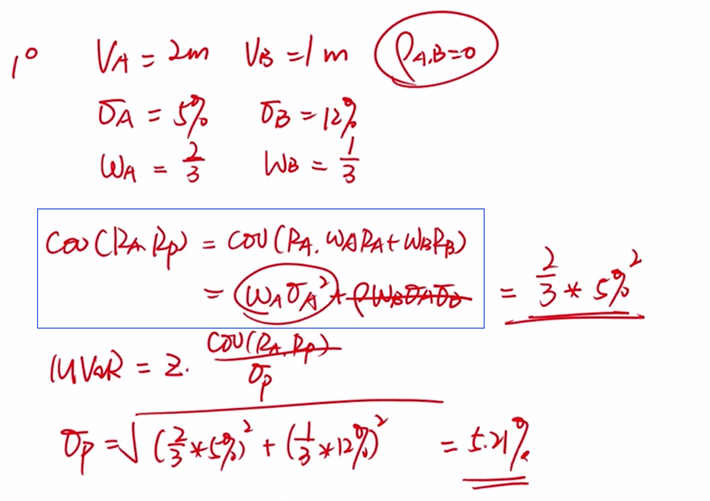 1° V_A = 2m V_B = 1m ρ_{A,B}=0
σ_A = 5% σ_B = 12%
ω_A = 2/3 ω_B = 1/3
COV(R_A, R_P) = COV(R_A, ω_A R_A + ω_B R_B)
= ω_A σ_A² + ρ ω_B σ_A σ_B = 2/3 * 5%²
MVaR = Z · COV(R_A, R_P)/σ_P
σ_P = √((2/3 * 5%)² + (1/3 * 12%)²) = 5.21%